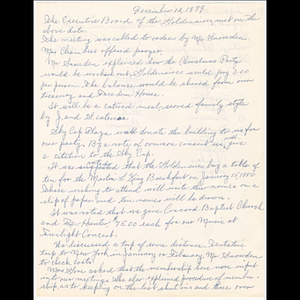 December 12, 1979
The Executive Board of the Goldenaires met on the
above date.
The meeting was called to order by Mr. Snowden.
Mrs. Chambers offered prayer.
Mr. Snowden explained how the Christmas Party
would be worked out, Goldenaires would pay 3.00
per person. The balance would be shared from our
treasury and Freedom House.
It will be a catered meal, served family style
by J and J caterers.
Sky Cap Plaza will donate the building to us for
our party. By a vote of common consent we give
a citation to the Sky Cap.
It was that the Goldenaires buy a table of
ten for the Martin L. King Breakfast on January 15, 1980.
Those wishing to attend will write their names on a
slip of paper and ten names will be drawn.
It was voted that we give Concord Baptist Church
and Dr. Hunter $75.00 each for our Music at
Twilight Concert.
We discussed a trip of some distance. Tentative
trip to New York in January or February. Mr. Snowden
to check costs.
Mrs. asked that the membership
our meetings. She also explained procedure of member-
ship as to keeping on the list shut ins and those over